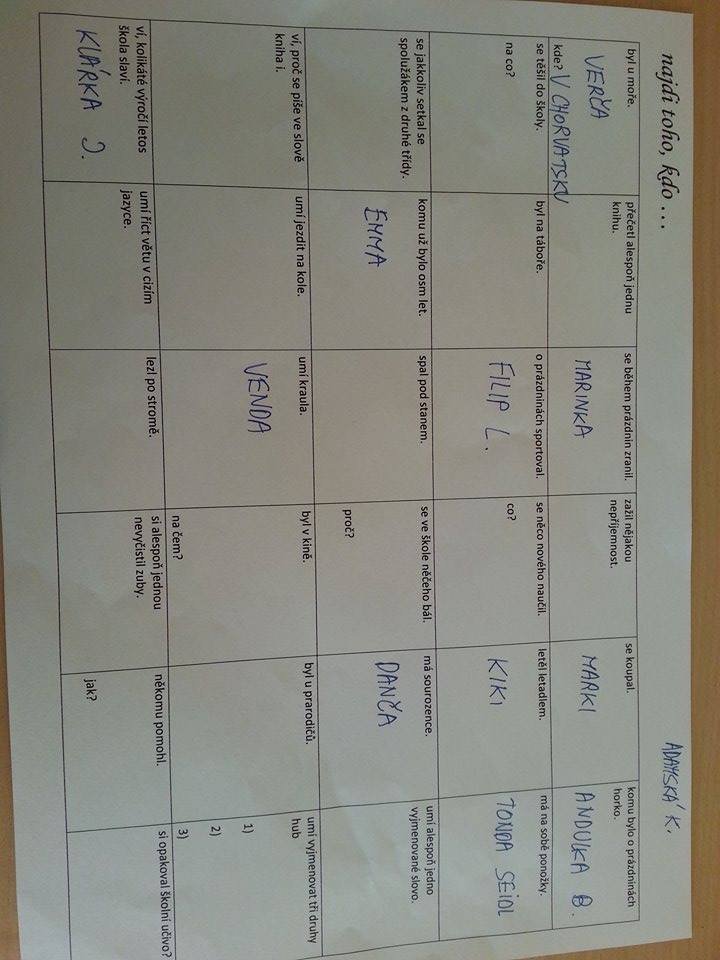 najdi toho, kdo ...
ADAMSKÁ K.
byl u moře.
VERČA
kde? V CHORVATSKU
přečetl alespoň jednu
knihu.
se během prázdnin zranil.
MARINKA
zažil nějakou
nepříjemnost.
se koupal.
MARKI
komu bylo o prázdninách
horko.
ANDULKA B.
se těšil do školy.
na co?
byl na táboře.
o prázdninách sportoval.
FILIP L.
se něco nového naučil.
co?
letěl letadlem.
KIKI
má na sobě ponožky.
TONDA SEIDL
se jakkoliv setkal se
spolužákem z druhé třídy.
komu už bylo osm let.
EMMA
spal pod stanem.
se ve škole něčeho bál.
proč?
má sourozence.
DANČA
umí alespoň jedno
vyjmenované slovo.
ví, proč se píše ve slově
kniha i.
umí jezdit na kole.
umí kraula.
VENDA
byl v kině.
na čem?
byl u prarodičů.
umí vyjmenovat tři druhy
hub
1)
2)
3)
ví, kolikáté výročí letos
škola slaví.
KLÁRKA J.
umí říct větu v cizím
jazyce.
lezl po stromě.
si alespoň jednou
nevyčistil zuby.
někomu pomohl.
jak?
si opakoval školní učivo?